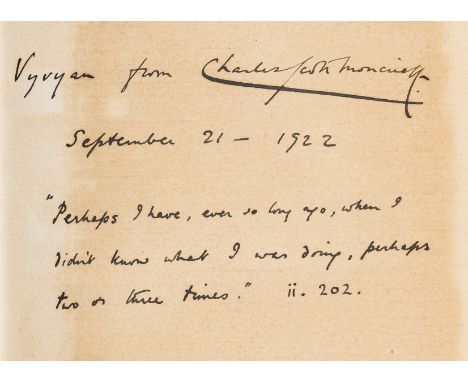 Vyvyan from Charles Scott Moncrieff.
September 21 – 1922
"Perhaps I have, ever so long ago, when I
didn't know what I was doing, perhaps
two or three times." ii. 202.